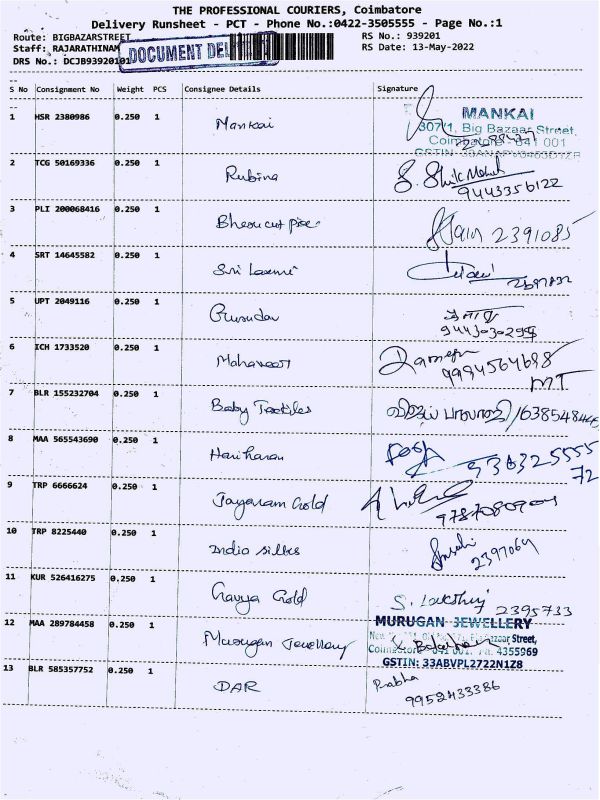 THE PROFESSIONAL COURIERS, Coimbatore
Delivery Runsheet - PCT - Phone No.:0422-3505555 - Page No.:1
Route: BIGBAZARSTREET
RS No.: 939201
Staff: RAJARATHINAM
RS Date: 13-May-2022
DRS No.: DCJB93920101
DOCUMENT DEL
S No Consignment No Weight PCS Consignee Details Signature
1 HSR 2380986 0.250 1 Mankai
MANKAI
307/1, Big Bazaar Street,
Coimbatore - 641 001
2 TCG 50169336 0.250 1 Rubina
9443356122
3 PLI 200068416 0.250 1 Jain 2391085
4 SRT 14645582 0.250 1 Sri Laxmi
5 UPT 2049116 0.250 1 Gurudev
6 ICH 1733520 0.250 1 Mahaveer Ramesh
9994564698
MT
7 BLR 155232704 0.250 1 Baby Textiles
8 MAA 565543690 0.250 1 Hariharan
72
9 TRP 6666624 0.250 1 Jayaram Gold
10 TRP 8225440 0.250 1 India silks
2397064
11 KUR 526416275 0.250 1 Kavya Gold S. Lakshmi 2395733
12 MAA 289784458 0.250 1 Murugan Jewellary
MURUGAN JEWELLERY
Bazaar Street,
Coimbatore - 641 001. 4355969
GSTIN: 33ABVPL2722N1Z8
13 BLR 585357752 0.250 1 DAR Prabha
9952433386